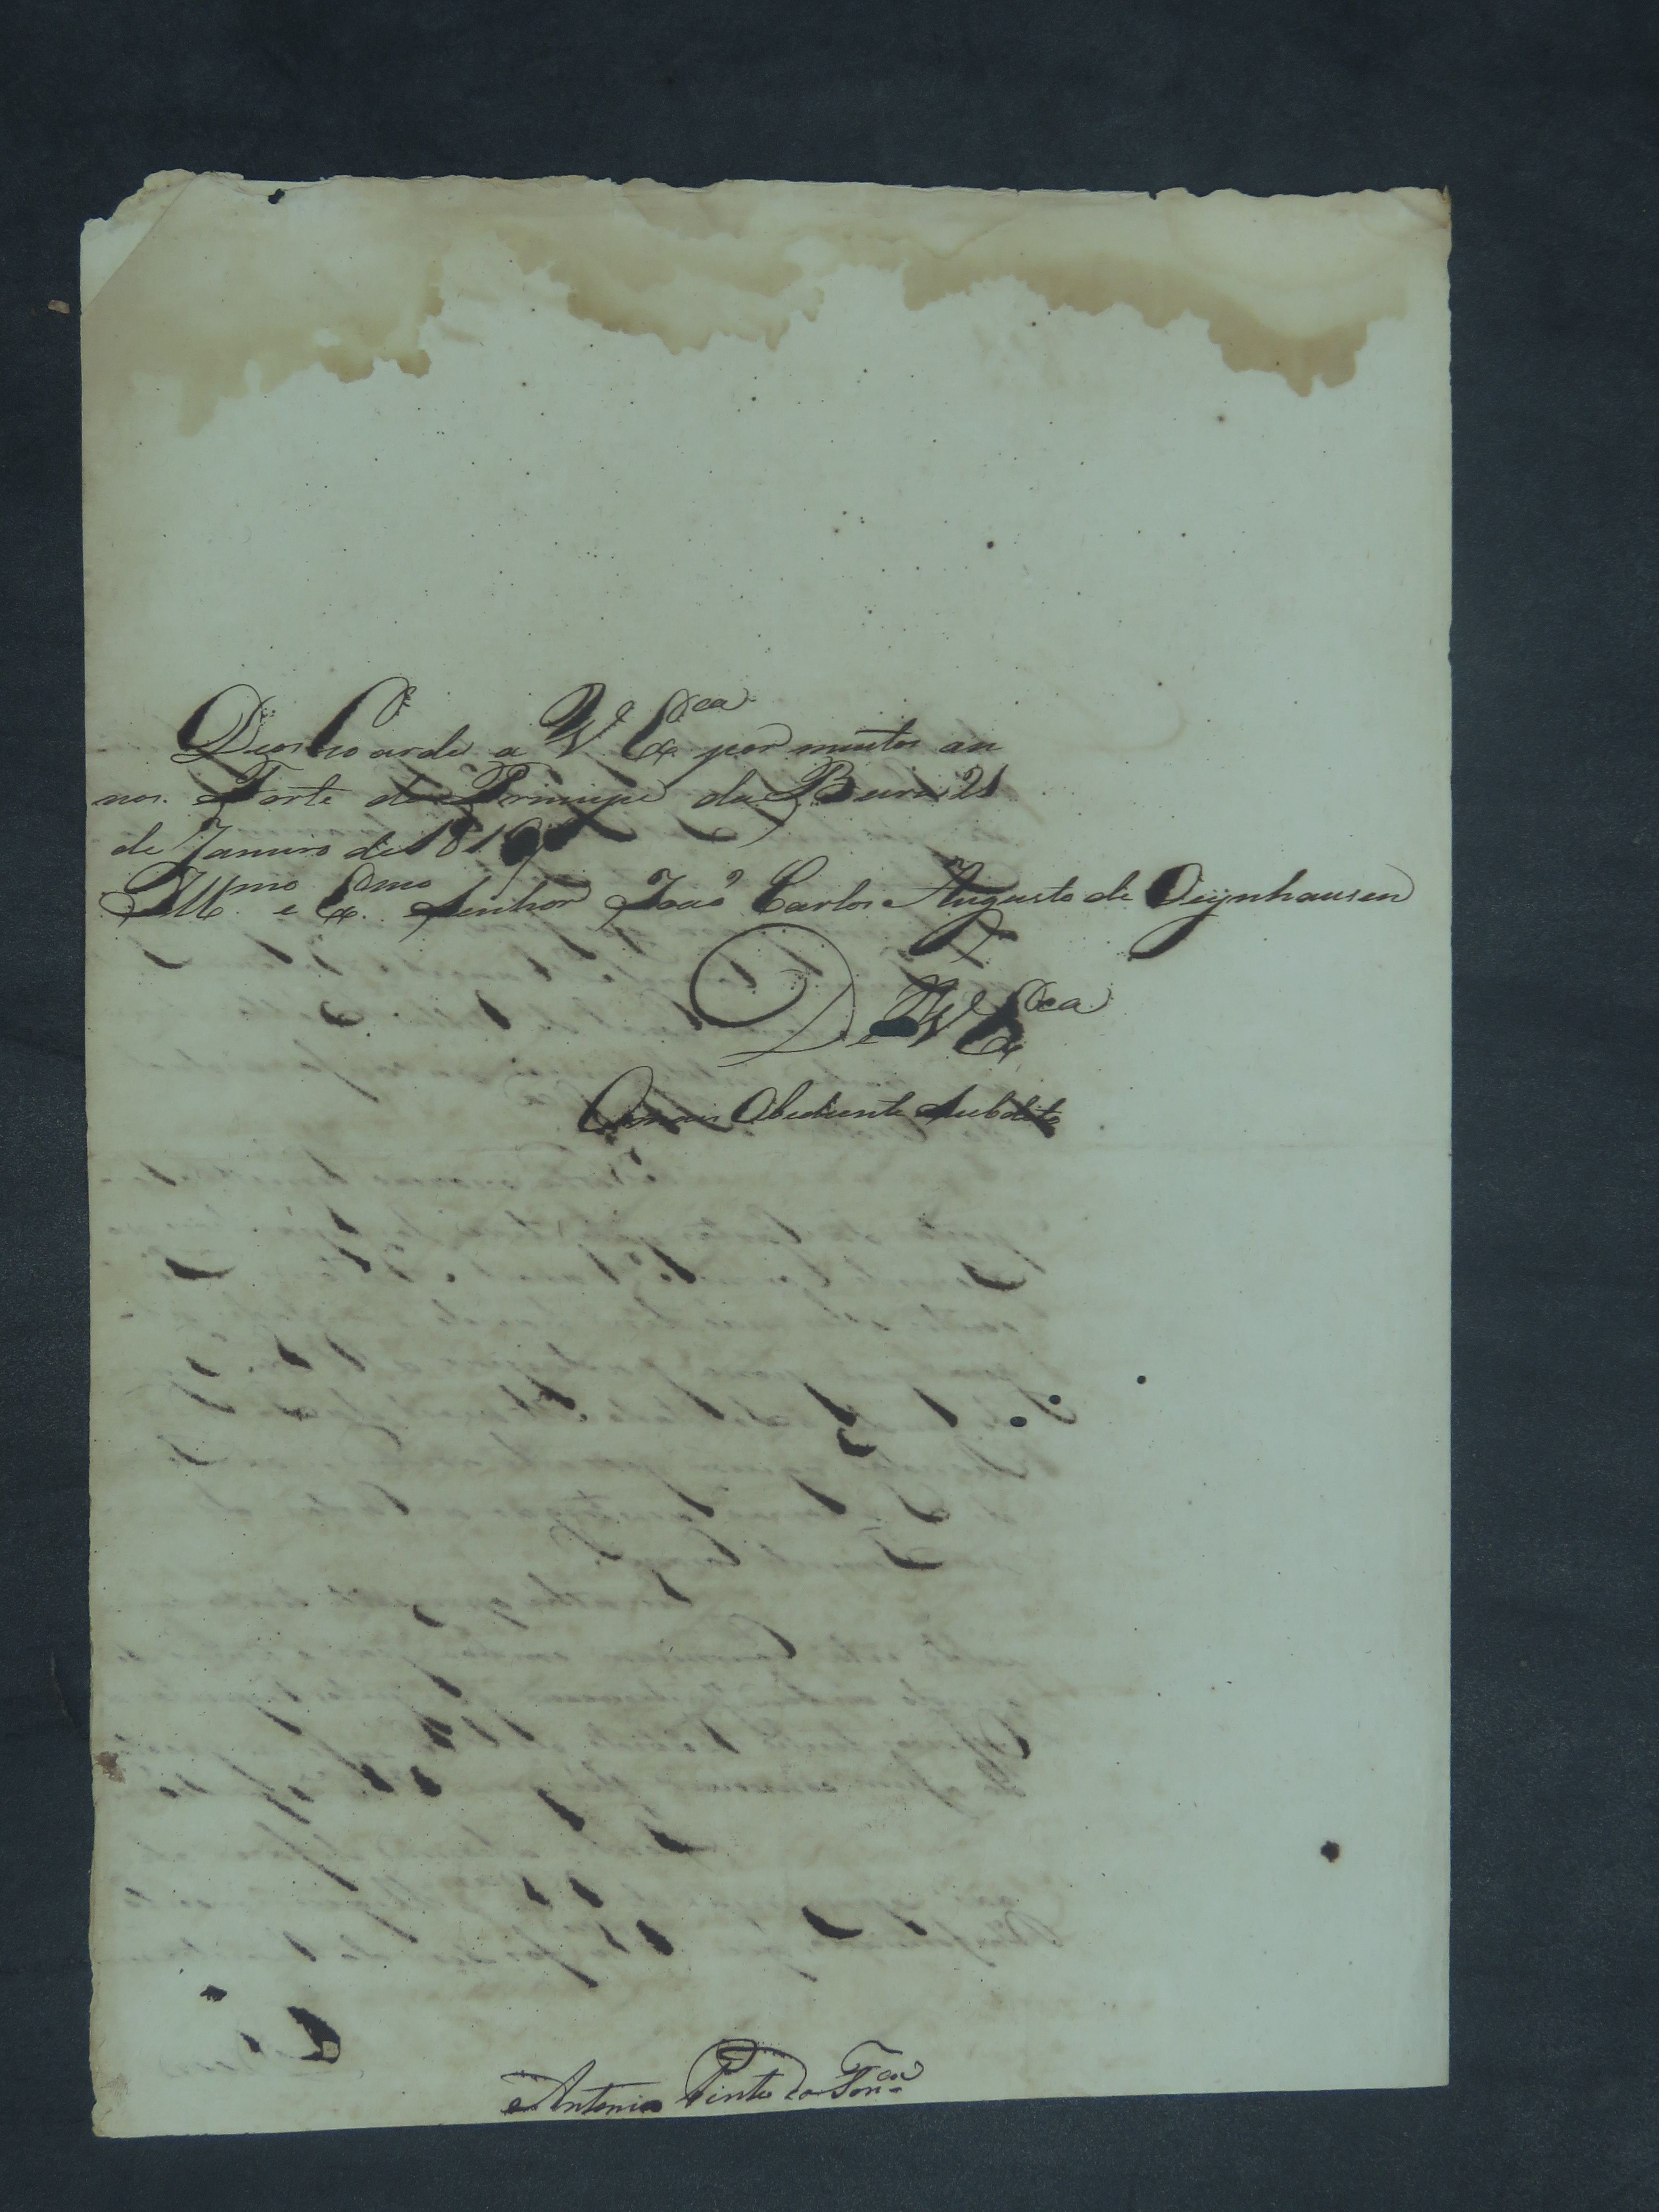 Deos Goarde a V.e Ex.cia por muitos an
nos. Forte do Principe da Beira 21
de Janeiro de 181
Ill.mo e Ex.mo Senhor João Carlos Augusto de Oeynhausen
De V.e Ex.cia
O mais Obediente Subdito
Antonio Pinto da Fon.ca